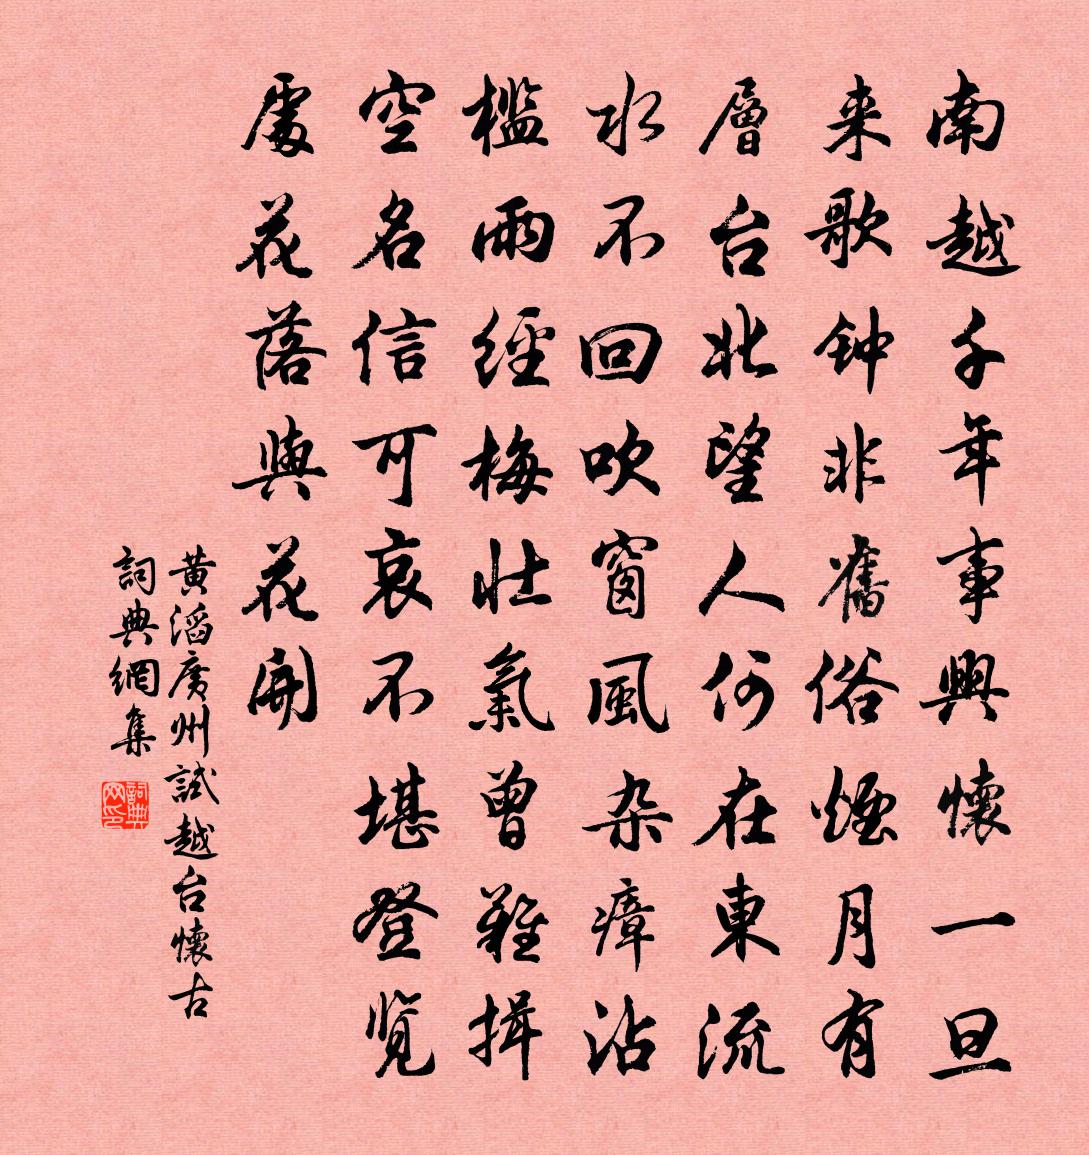 南越千年事興懷一旦
来歌钟非舊俗煙月有
層台北望人何在東流
水不回吹窗風杂瘴沾
檻雨經梅壮氣曾難揖
空名信可哀不堪登覧
處花落與花開
黃滔廣州試越台懷古
詞典網集
詞典网印